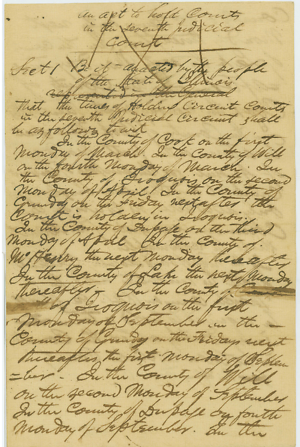 an act to hold Courts
in the seventh judicial
Court
Sect 1 Be it enacted by the people
of the State of Illinois
represented in the General
that the times of Holding Circuit Courts
in the seventh Judicial Circuit shall
be as follows to wit
In the County of Cook on the first
Monday of March. In the County of Will
on the fourth Monday of March. In
the County of Iroquois on the second
Monday of April. In the County of
Grundy on the Friday next after the
Court is holden in Iroquois.
In the County of Dupage on the third
Monday of April. In the County of
McHenry the next Monday thereafter
In the County of Lake the next Monday
thereafter. In the County
of Iroquois on the first
Monday of September in the
County of Grundy on the Friday next
thereafter, the first Monday of Septem
-ber. In the County of Will
on the second Monday of September
In the County of Dupage on fourth
Monday of September. In the